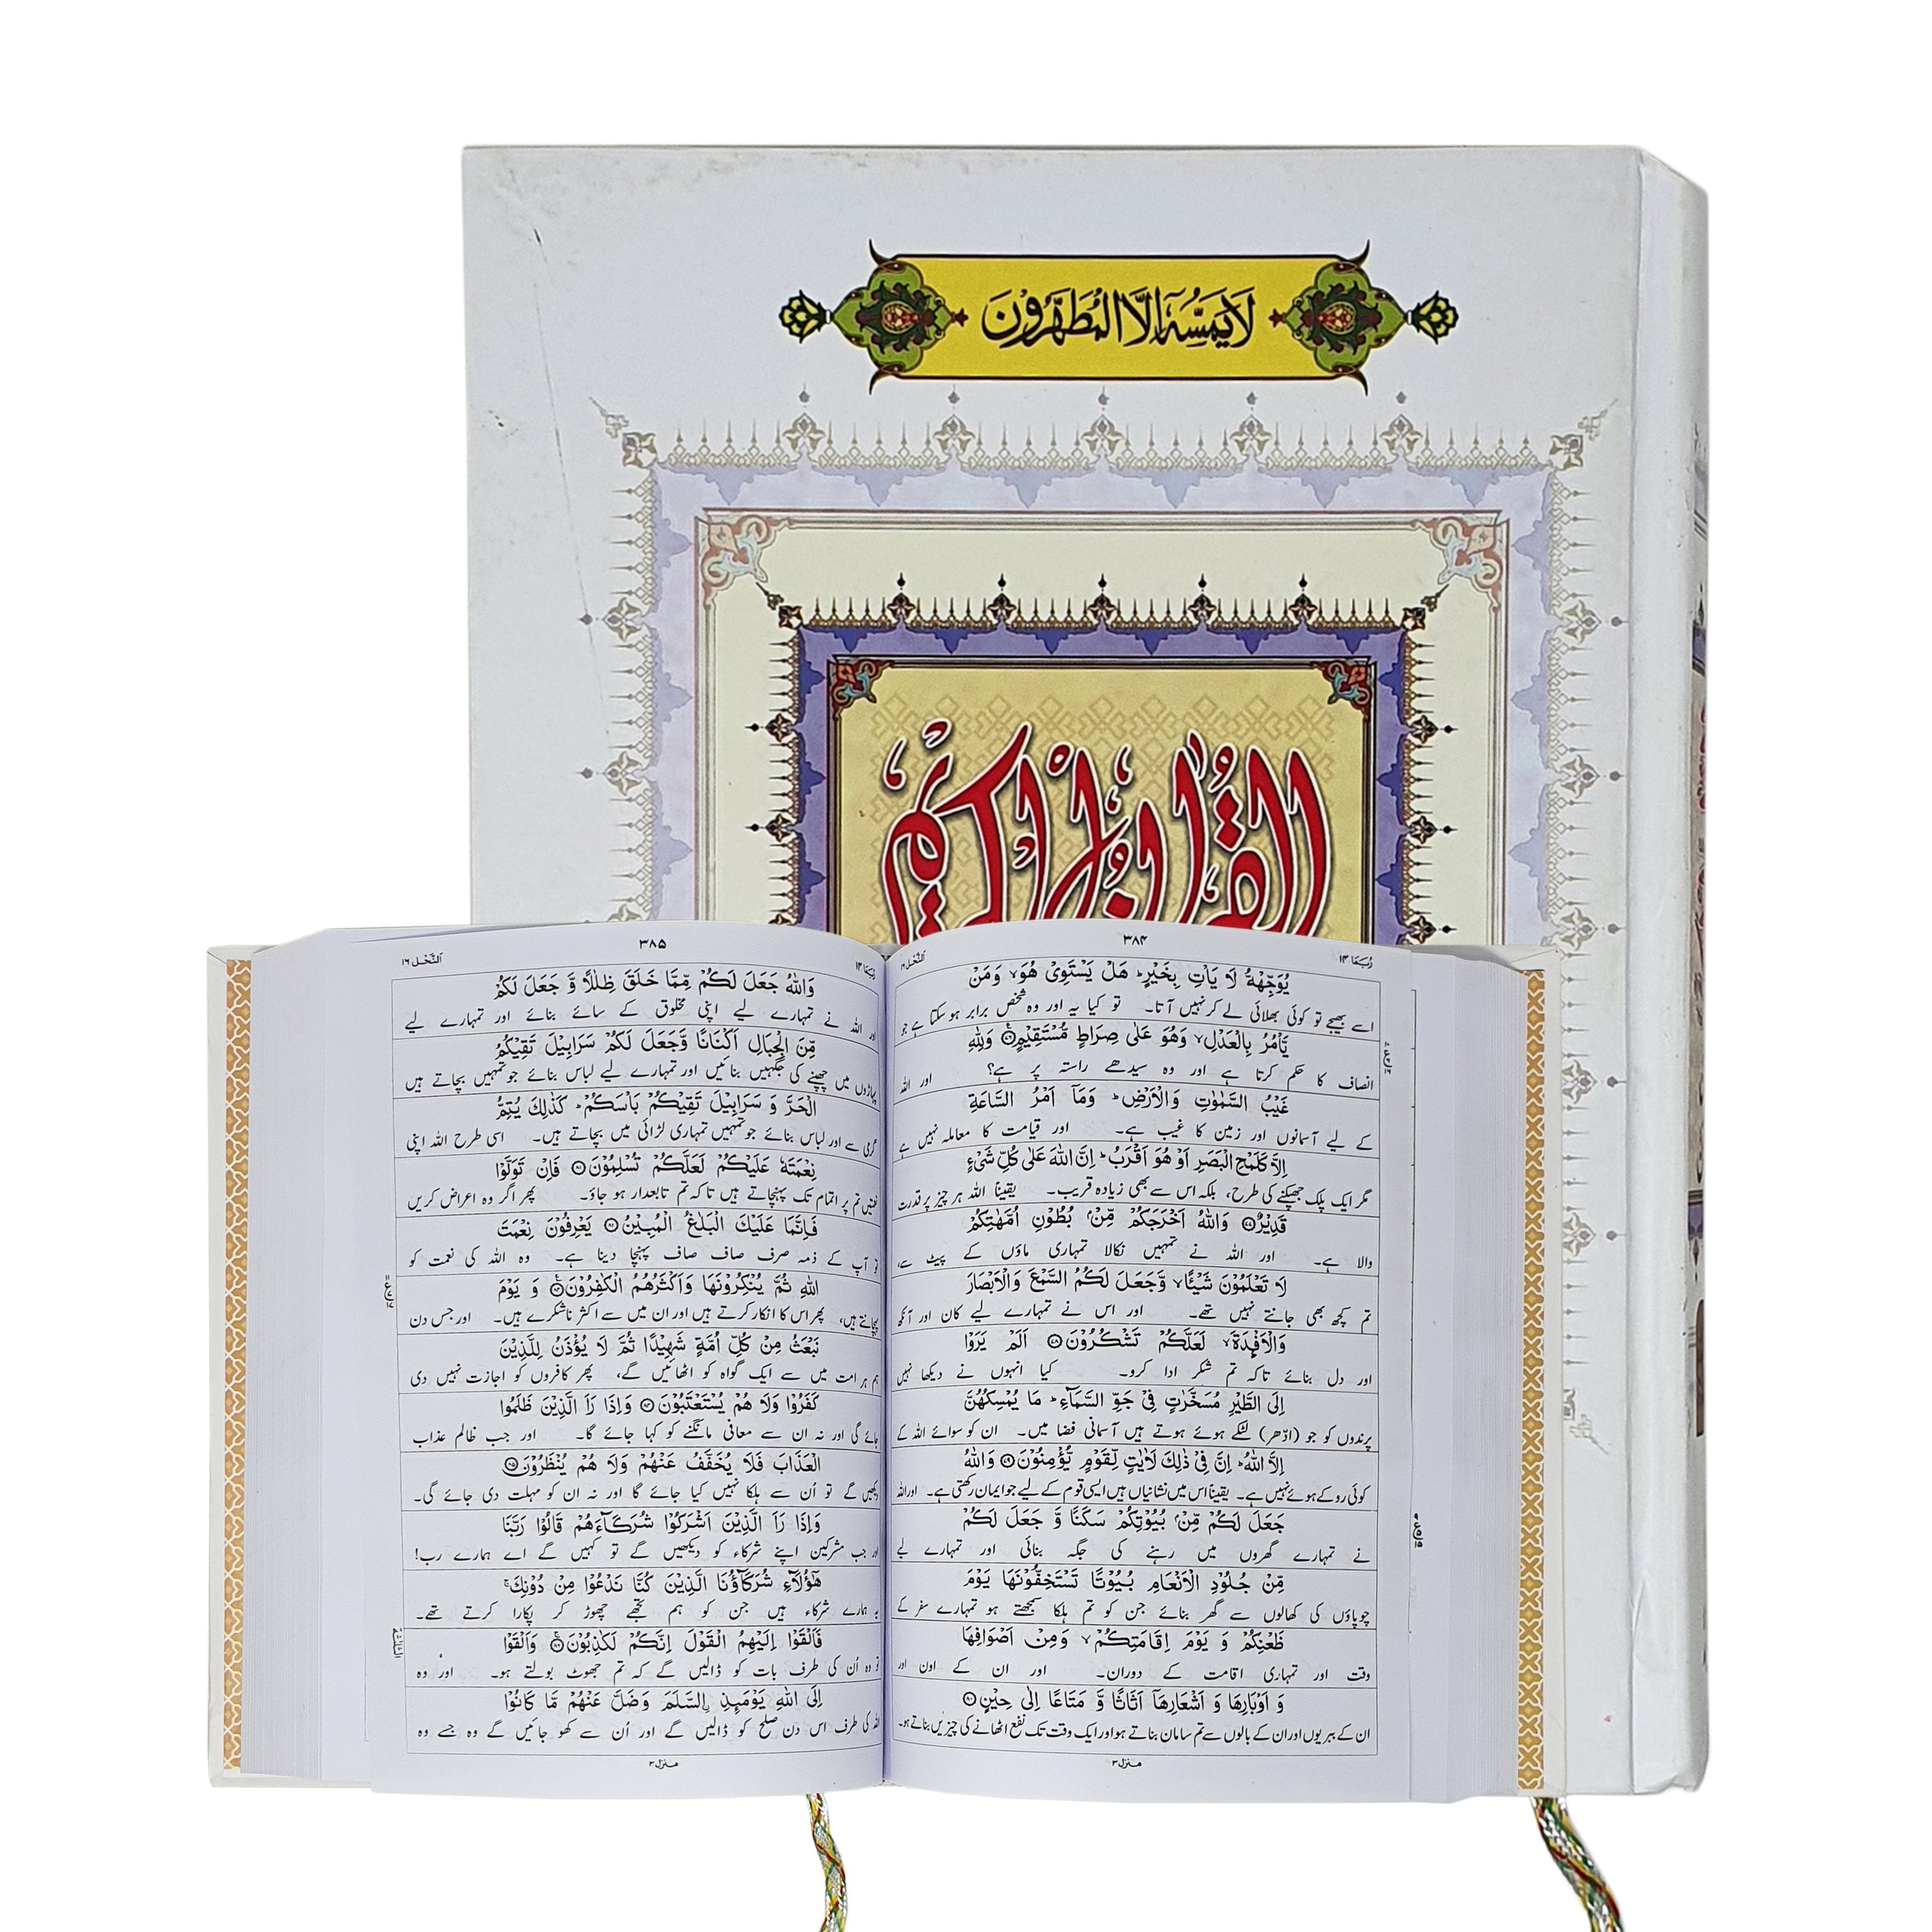 لَا يَمَسُّهٗۤ اِلَّا الْمُطَهَّرُوْنَ
القرآن الكريم
۳۸۴
رُبَمَا ۱۴
اَلنَّحْل ۱۶
يُوَجِّهْهُّ لَا يَاْتِ بِخَيْرٍ ؕ هَلْ يَسْتَوِيْ هُوَ ۙ وَ مَنْ
اسے بھیجے تو کوئی بھلائی لے کر نہیں آتا۔ تو کیا یہ اور وہ شخص برابر ہو سکتا ہے جو
يَّاْمُرُ بِالْعَدْلِ ۙ وَهُوَ عَلٰى صِرَاطٍ مُّسْتَقِيْمٍ ۟ وَلِلّٰهِ
انصاف کا حکم کرتا ہے اور وہ سیدھے راستہ پر ہے؟ اور اللہ
غَيْبُ السَّمٰوٰتِ وَالْاَرْضِ ؕ وَمَاۤ اَمْرُ السَّاعَةِ
کے لیے آسمانوں اور زمین کا غیب ہے۔ اور قیامت کا معاملہ نہیں ہے
اِلَّا كَلَمْحِ الْبَصَرِ اَوْ هُوَ اَقْرَبُ ؕ اِنَّ اللّٰهَ عَلٰى كُلِّ شَيْءٍ
مگر ایک پلک جھپکنے کی طرح، بلکہ اس سے بھی زیادہ قریب۔ یقیناً اللہ ہر چیز پر قدرت
قَدِيْرٌ ۟ وَاللّٰهُ اَخْرَجَكُمْ مِّنْۢ بُطُوْنِ اُمَّهٰتِكُمْ
والا ہے۔ اور اللہ نے تمہیں نکالا تمہاری ماؤں کے پیٹ سے،
لَا تَعْلَمُوْنَ شَيْـًٔا ۙ وَّجَعَلَ لَكُمُ السَّمْعَ وَالْاَبْصَارَ
تم کچھ بھی جانتے نہیں تھے۔ اور اس نے تمہارے لیے کان اور آنکھ
وَالْاَفْـِٕدَةَ ۙ لَعَلَّكُمْ تَشْكُرُوْنَ ۟ اَلَمْ يَرَوْا
اور دل بنائے تاکہ تم شکر ادا کرو۔ کیا انہوں نے دیکھا نہیں
اِلَى الطَّيْرِ مُسَخَّرٰتٍ فِيْ جَوِّ السَّمَآءِ ؕ مَا يُمْسِكُهُنَّ
پرندوں کو جو (ادھر) لٹکے ہوئے ہوتے ہیں آسمانی فضا میں۔ ان کو سوائے اللہ کے
اِلَّا اللّٰهُ ؕ اِنَّ فِيْ ذٰلِكَ لَاٰيٰتٍ لِّقَوْمٍ يُّؤْمِنُوْنَ ۟ وَاللّٰهُ
کوئی روکے ہوئے نہیں ہے۔ یقیناً اس میں نشانیاں ہیں ایسی قوم کے لیے جو ایمان رکھتی ہے۔ اور اللہ
جَعَلَ لَكُمْ مِّنْۢ بُيُوْتِكُمْ سَكَنًا وَّ جَعَلَ لَكُمْ
نے تمہارے گھروں میں رہنے کی جگہ بنائی اور تمہارے لیے
مِّنْ جُلُوْدِ الْاَنْعَامِ بُيُوْتًا تَسْتَخِفُّوْنَهَا يَوْمَ
چوپاؤں کی کھالوں سے گھر بنائے جن کو تم ہلکا سمجھتے ہو تمہارے سفر کے
ظَعْنِكُمْ وَ يَوْمَ اِقَامَتِكُمْ ۙ وَمِنْ اَصْوَافِهَا
وقت اور تمہاری اقامت کے دوران۔ اور ان کے اون اور
وَ اَوْبَارِهَا وَ اَشْعَارِهَاۤ اَثَاثًا وَّ مَتَاعًا اِلٰى حِيْنٍ ۟
ان کے ببریوں اور ان کے بالوں سے تم سامان بناتے ہو اور ایک وقت تک نفع اٹھانے کی چیزیں بناتے ہو۔
منزل ۳
۳۸۵
رُبَمَا ۱۴
اَلنَّحْل ۱۶
وَاللّٰهُ جَعَلَ لَكُمْ مِّمَّا خَلَقَ ظِلٰلًا وَّ جَعَلَ لَكُمْ
اور اللہ نے تمہارے لیے اپنی مخلوق کے سائے بنائے اور تمہارے لیے
مِّنَ الْجِبَالِ اَكْنَانًا وَّجَعَلَ لَكُمْ سَرَابِيْلَ تَقِيْكُمُ
پہاڑوں میں چھپنے کی جگہیں بنائیں اور تمہارے لیے لباس بنائے جو تمہیں بچاتے ہیں
الْحَرَّ وَ سَرَابِيْلَ تَقِيْكُمْ بَاْسَكُمْ ؕ كَذٰلِكَ يُتِمُّ
گرمی سے اور لباس بنائے جو تمہیں تمہاری لڑائی میں بچاتے ہیں۔ اسی طرح اللہ اپنی
نِعْمَتَهٗ عَلَيْكُمْ لَعَلَّكُمْ تُسْلِمُوْنَ ۟ فَاِنْ تَوَلَّوْا
نعمتیں تم پر اتمام تک پہنچاتے ہیں تاکہ تم تابعدار ہو جاؤ۔ پھر اگر وہ اعراض کریں
فَاِنَّمَا عَلَيْكَ الْبَلٰغُ الْمُبِيْنُ ۟ يَعْرِفُوْنَ نِعْمَتَ
تو آپ کے ذمہ صرف صاف صاف پہنچا دینا ہے۔ وہ اللہ کی نعمت کو
اللّٰهِ ثُمَّ يُنْكِرُوْنَهَا وَاَكْثَرُهُمُ الْكٰفِرُوْنَ ۟ وَ يَوْمَ
پہچانتے ہیں، پھر اس کا انکار کرتے ہیں اور ان میں سے اکثر ناشکرے ہیں۔ اور جس دن
نَبْعَثُ مِنْ كُلِّ اُمَّةٍ شَهِيْدًا ثُمَّ لَا يُؤْذَنُ لِلَّذِيْنَ
ہم ہر امت میں سے ایک گواہ کو اٹھائیں گے، پھر کافروں کو اجازت نہیں دی
كَفَرُوْا وَلَا هُمْ يُسْتَعْتَبُوْنَ ۟ وَاِذَا رَاَ الَّذِيْنَ ظَلَمُوا
جائے گی اور نہ ان سے معافی مانگنے کو کہا جائے گا۔ اور جب ظالم عذاب
الْعَذَابَ فَلَا يُخَفَّفُ عَنْهُمْ وَلَا هُمْ يُنْظَرُوْنَ ۟
دیکھیں گے تو اُن سے ہلکا نہیں کیا جائے گا اور نہ ان کو مہلت دی جائے گی۔
وَاِذَا رَاَ الَّذِيْنَ اَشْرَكُوْا شُرَكَآءَهُمْ قَالُوْا رَبَّنَا
اور جب مشرکین اپنے شرکاء کو دیکھیں گے تو کہیں گے اے ہمارے رب!
هٰۤؤُلَآءِ شُرَكَآؤُنَا الَّذِيْنَ كُنَّا نَدْعُوْا مِنْ دُوْنِكَ ۚ
یہ ہمارے شرکاء ہیں جن کو ہم تجھے چھوڑ کر پکارا کرتے تھے۔
فَاَلْقَوْا اِلَيْهِمُ الْقَوْلَ اِنَّكُمْ لَكٰذِبُوْنَ ۟ وَاَلْقَوْا
تو وہ اُن کی طرف بات کو ڈالیں گے کہ تم جھوٹ بولتے ہو۔ اور وہ
اِلَى اللّٰهِ يَوْمَىِٕذِ ۟السَّلَمَ وَضَلَّ عَنْهُمْ مَّا كَانُوْا
اللہ کی طرف اس دن صلح کو ڈالیں گے اور اُن سے کھو جائیں گے وہ جسے وہ
منزل ۳